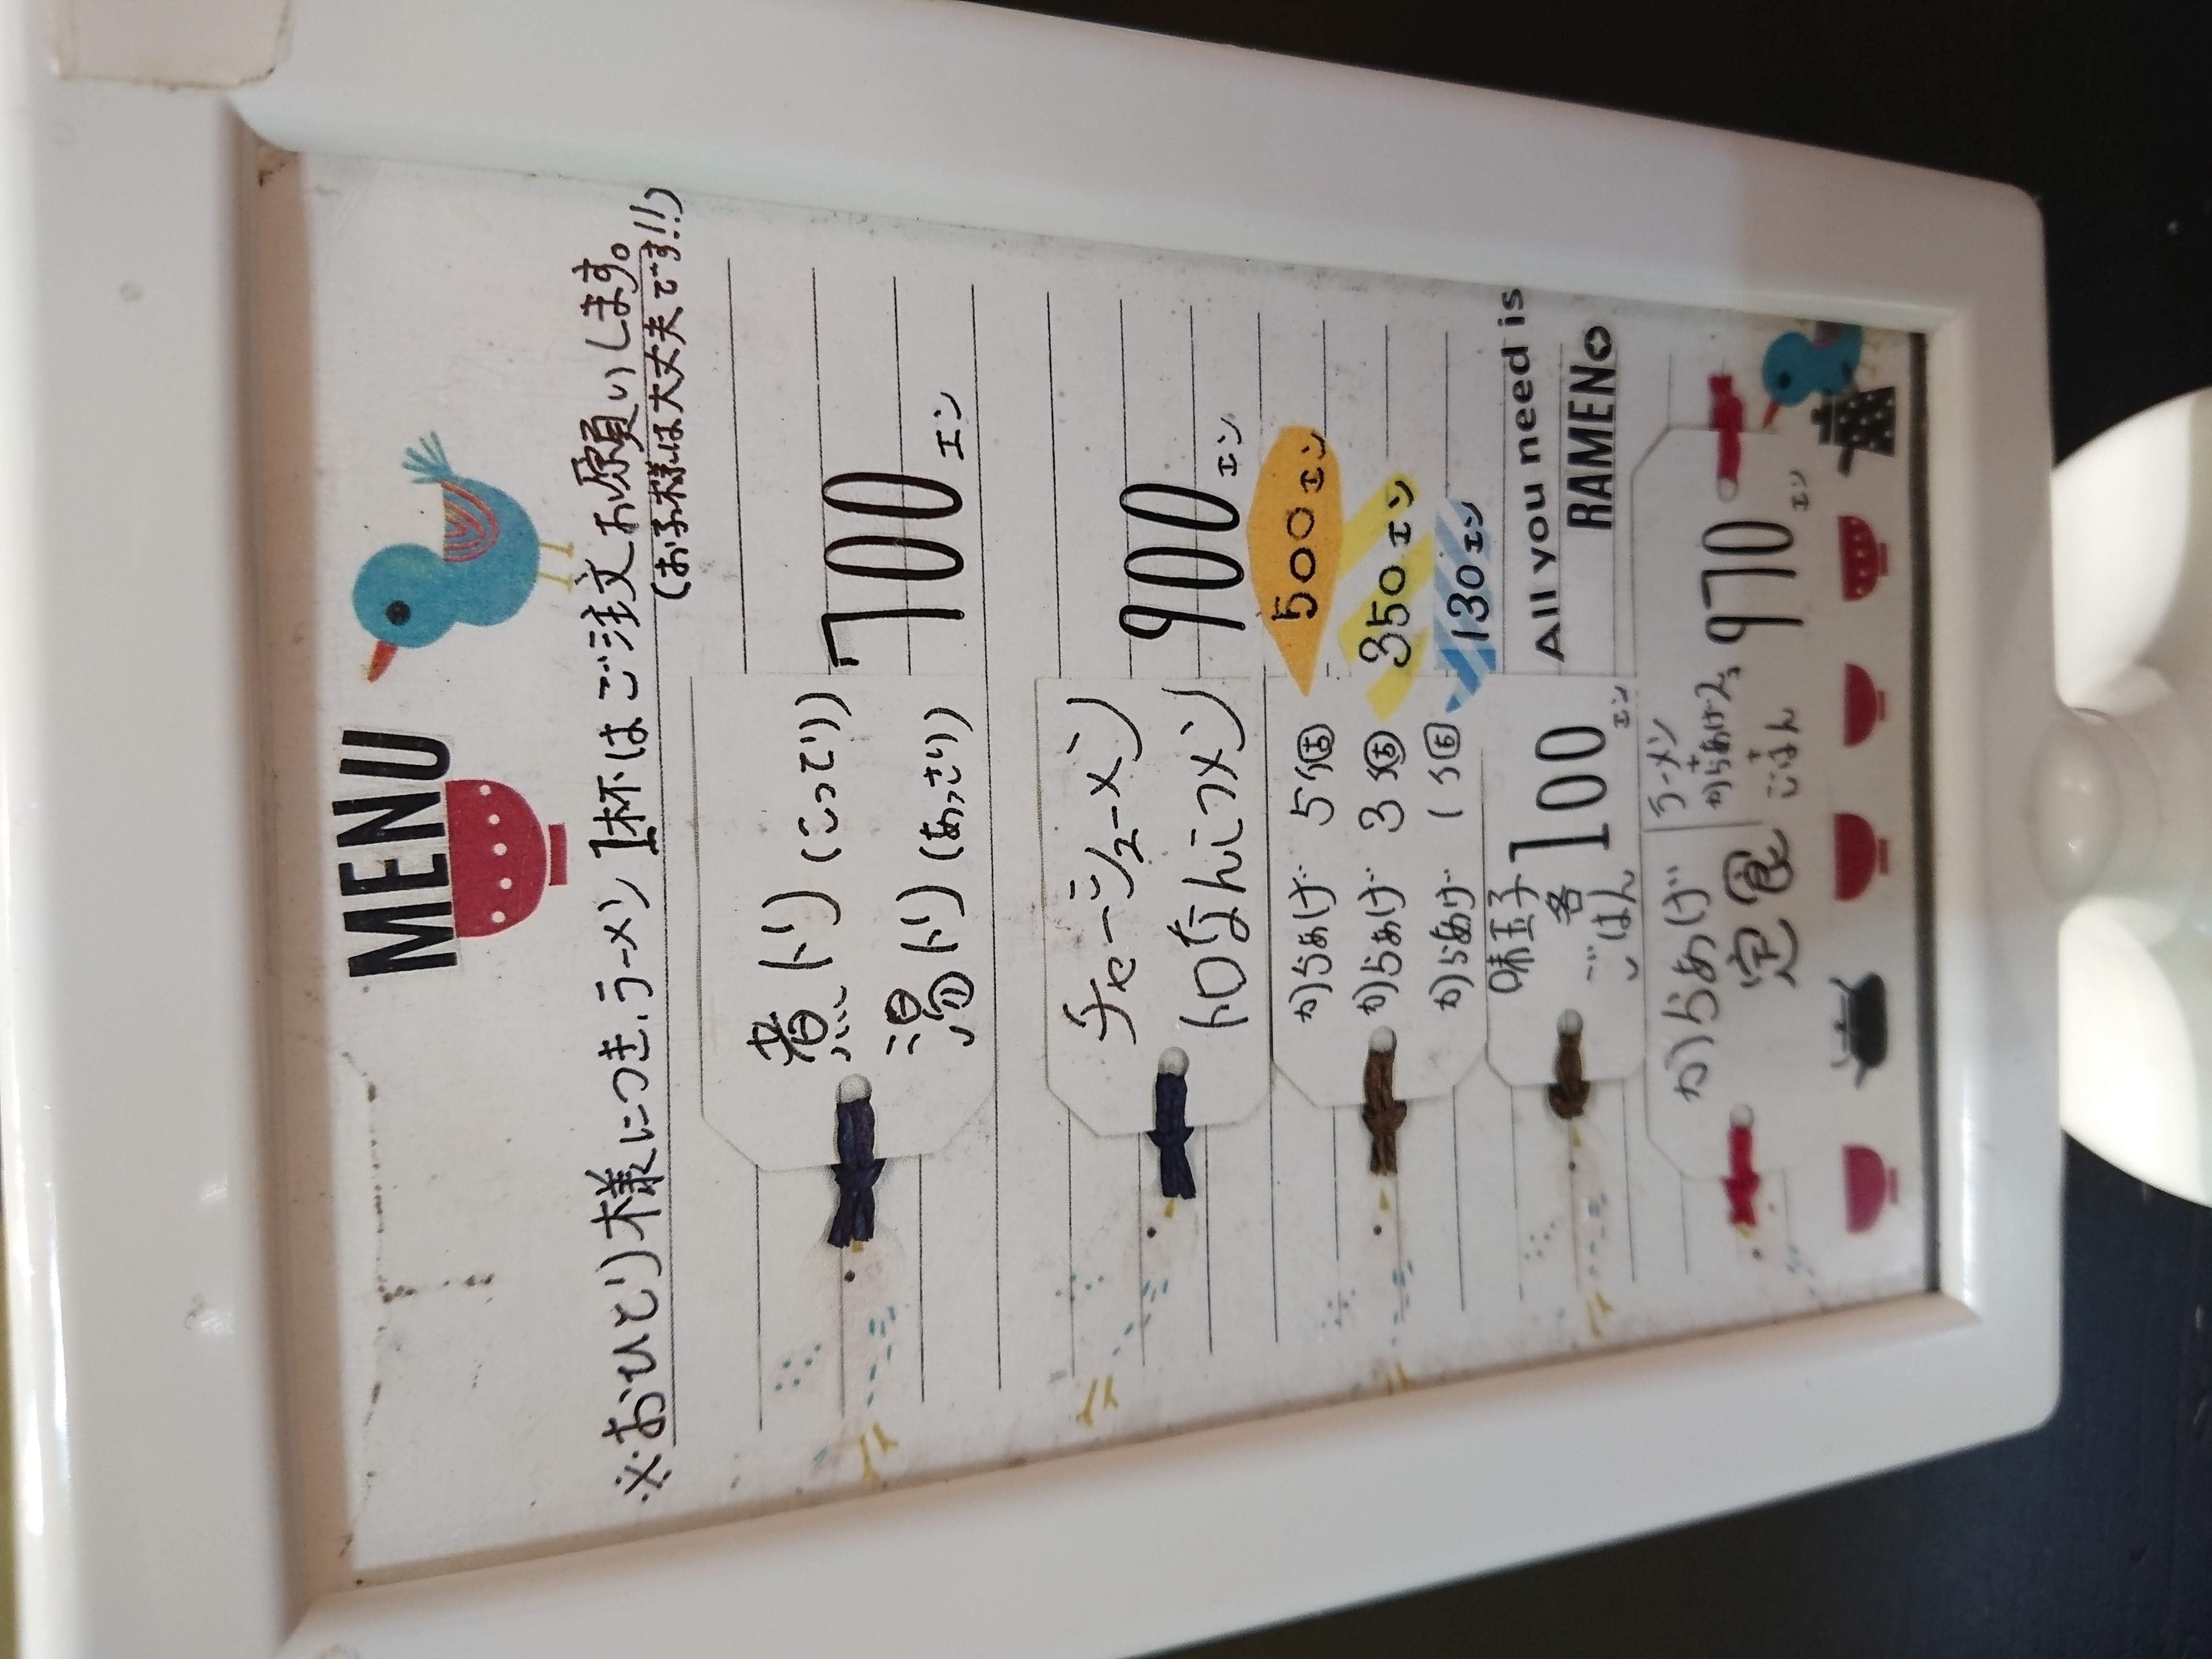 MENU
※おひとり様につき、ラーメン1杯はご注文お願いします。
(お子様は大丈夫です!!)
煮トリ(こってり)
湯トリ(あっさり)
700エン
チャーシューメン
トロなんこつメン
900エン
からあげ 5個 500エン
からあげ 3個 350エン
からあげ 1個 130エン
味玉子
各 100エン
ごはん
All you need is
RAMEN
からあげ
定食
ラーメン
+
からあげ2コ
+
ごはん
970エン